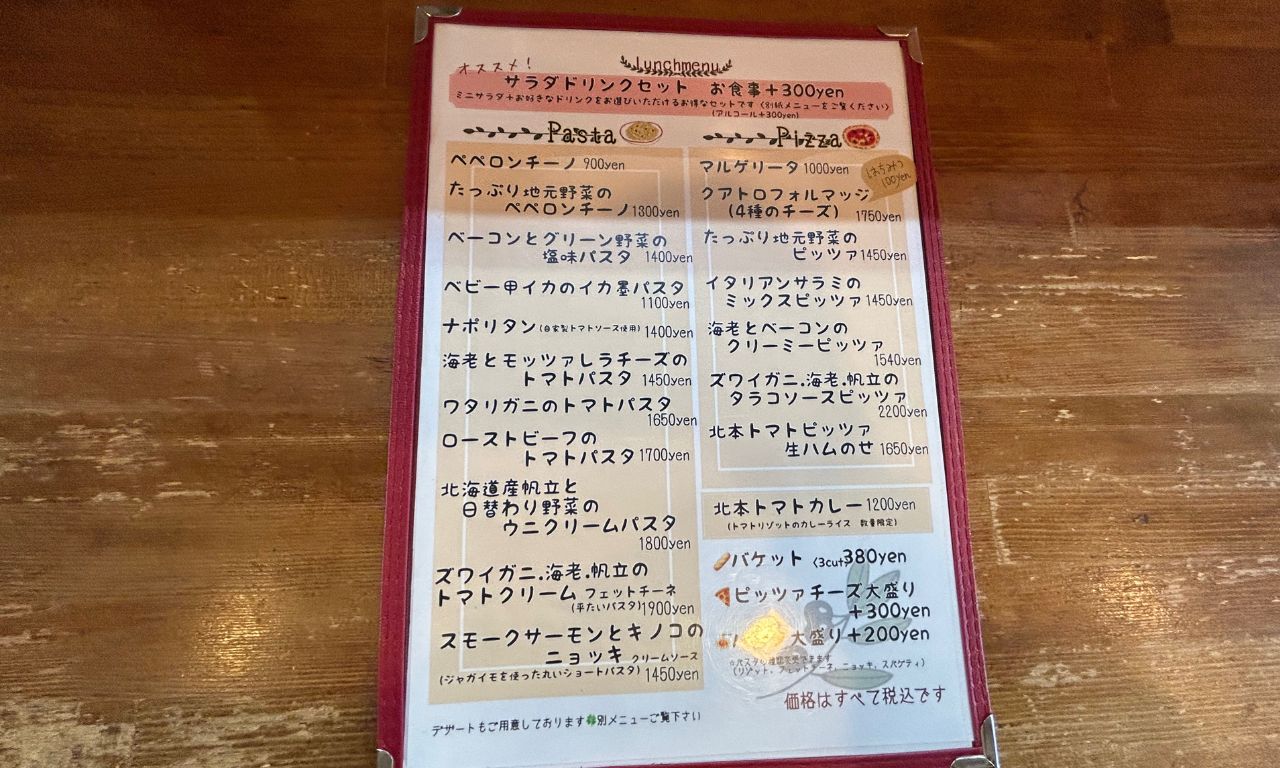 Lunchmenu
オススメ!
サラダドリンクセット お食事+300yen
ミニサラダ+お好きなドリンクをお選びいただけるお得なセットです〈別紙メニューをご覧ください〉
(アルコール+300yen)
Pasta
ペペロンチーノ 900yen
たっぷり地元野菜の
ペペロンチーノ1300yen
ベーコンとグリーン野菜の
塩味パスタ 1400yen
ベビー甲イカのイカ墨パスタ
1100yen
ナポリタン(自家製トマトソース使用) 1400yen
海老とモッツァレラチーズの
トマトパスタ 1450yen
ワタリガニのトマトパスタ
1650yen
ローストビーフの
トマトパスタ 1700yen
北海道産帆立と
日替わり野菜の
ウニクリームパスタ
1800yen
ズワイガニ.海老.帆立の
トマトクリーム フェットチーネ
(平たいパスタ)1900yen
スモークサーモンとキノコの
ニョッキ クリームソース
(ジャガイモを使った丸いショートパスタ) 1450yen
デザートもご用意しております🍀別メニューご覧下さい
Pizza
マルゲリータ 1000yen
はちみつ
100yen
クアトロフォルマッジ
(4種のチーズ) 1750yen
たっぷり地元野菜の
ピッツァ1450yen
イタリアンサラミの
ミックスピッツァ1450yen
海老とベーコンの
クリーミーピッツァ
1540yen
ズワイガニ.海老.帆立の
タラコソースピッツァ
2200yen
北本トマトピッツァ
生ハムのせ 1650yen
北本トマトカレー1200yen
(トマトリゾットのカレーライス 数量限定)
バケット 〈3cut〉380yen
ピッツァチーズ大盛り
+300yen
大盛り+200yen
(リゾット、フェットチーネ、ニョッキ、スパゲティ)
価格はすべて税込です